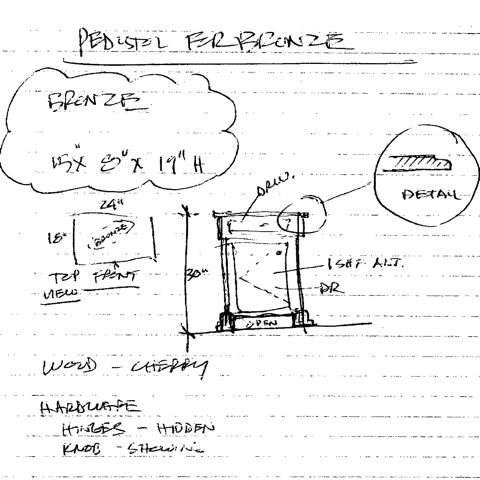 PEDISTEL FER BRONZE
BRONZE
15" X 8" X 19" H
DETAIL
DRW.
24"
18"
BRONZE
TOP FRONT
VIEW
30"
1 SHF ALT.
DR
OPEN
WOOD - CHERRY
HARDWARE
HINGES - HIDDEN
KNOB - SHOWING